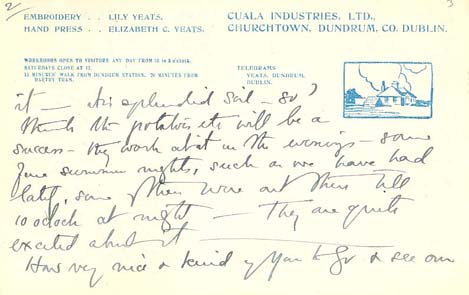 2
3
EMBROIDERY . . LILY YEATS.
HAND PRESS . . ELIZABETH C. YEATS.
CUALA INDUSTRIES, LTD.,
CHURCHTOWN, DUNDRUM, CO. DUBLIN.
WORKROOMS OPEN TO VISITORS ANY DAY FROM 10 to 5 o'clock.
SATURDAYS CLOSE AT 12.
15 MINUTES' WALK FROM DUNDRUM STATION. 20 MINUTES FROM
DARTRY TRAM.
TELEGRAMS
YEATS, DUNDRUM,
DUBLIN.
it — its splendid soil — so I
think the potatoes etc will be a
success — they work at it in the evenings — some
fine summer nights, such as we have had
lately, some of them were out there till
10 oclock at night — They are quite
excited about it
How very nice & kind of you to go & see our